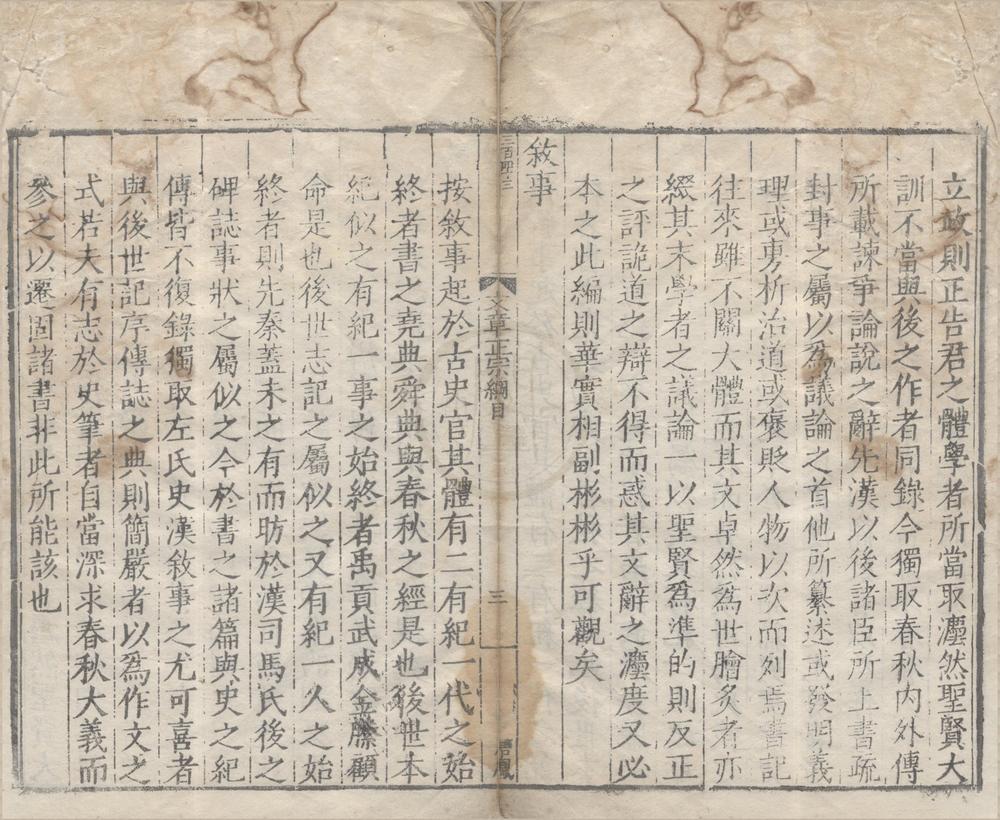 立政則正告君之體學者所當取灋然聖賢大
訓不當與後之作者同錄今獨取春秋內外傳
所載諫爭論說之辭先漢以後諸臣所上書疏
封事之屬以爲議論之首他所纂述或發明義
理或旉析治道或襃貶人物以次而列焉書記
往來雖不關大體而其文卓然爲世膾炙者亦
綴其末學者之議論一以聖賢爲準的則反正
之評詭道之辯不得而惑其文辭之灋度又必
本之此編則華實相副彬彬乎可觀矣
敘事
二百四十三
文章正宗綱目
三
唐鳳
按敘事起於古史官其體有二有紀一代之始
終者書之堯典舜典與春秋之經是也後世本
紀似之有紀一事之始終者禹貢武成金縢顧
命是也後世志記之屬似之又有紀一人之始
終者則先秦蓋未之有而昉於漢司馬氏後之
碑誌事狀之屬似之今於書之諸篇與史之紀
傳皆不復錄獨取左氏史漢敘事之尤可喜者
與後世記序傳誌之典則簡嚴者以爲作文之
式若夫有志於史筆者自當深求春秋大義而
參之以遷固諸書非此所能該也